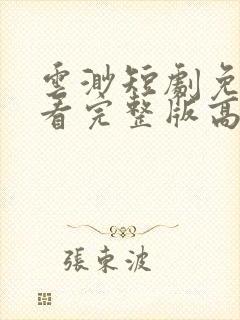 雲渺短劇免
看完整版高
張東波